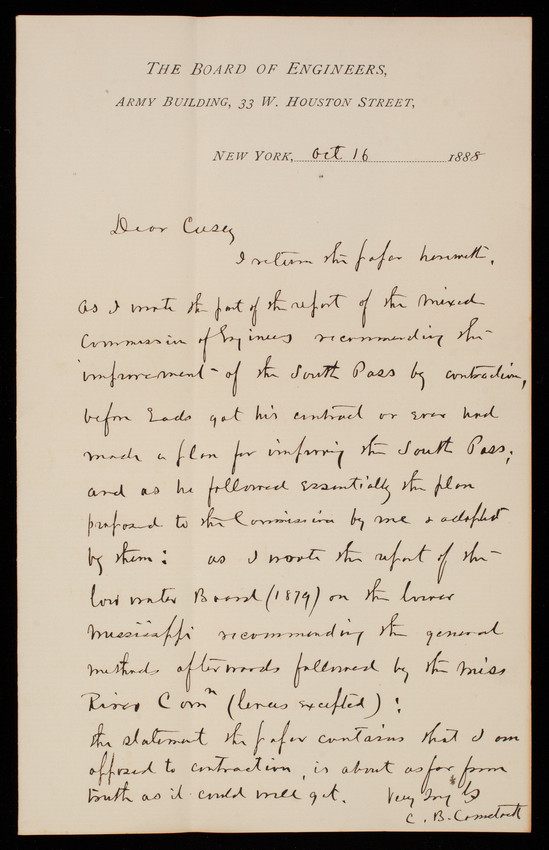 THE BOARD OF ENGINEERS,
ARMY BUILDING, 33 W. HOUSTON STREET,
NEW YORK, Oct 16 1888
Dear Casey
I return the paper herewith.
As I wrote the part of the report of the mixed
Commission of Engineers recommending the
improvement of the South Pass by contraction,
before Eads got his contract or ever had
made a plan for improving the South Pass;
and as he followed essentially the plan
proposed to the Commission by me & adopted
by them: as I wrote the report of the
low water Board (1879) on the lower
Mississippi recommending the general
methods afterwards followed by the Miss
River Comn (levees excepted):
the statement the paper contains that I am
opposed to contraction, is about as far from
truth as it could well get. Very Truly
C. B. Comstock